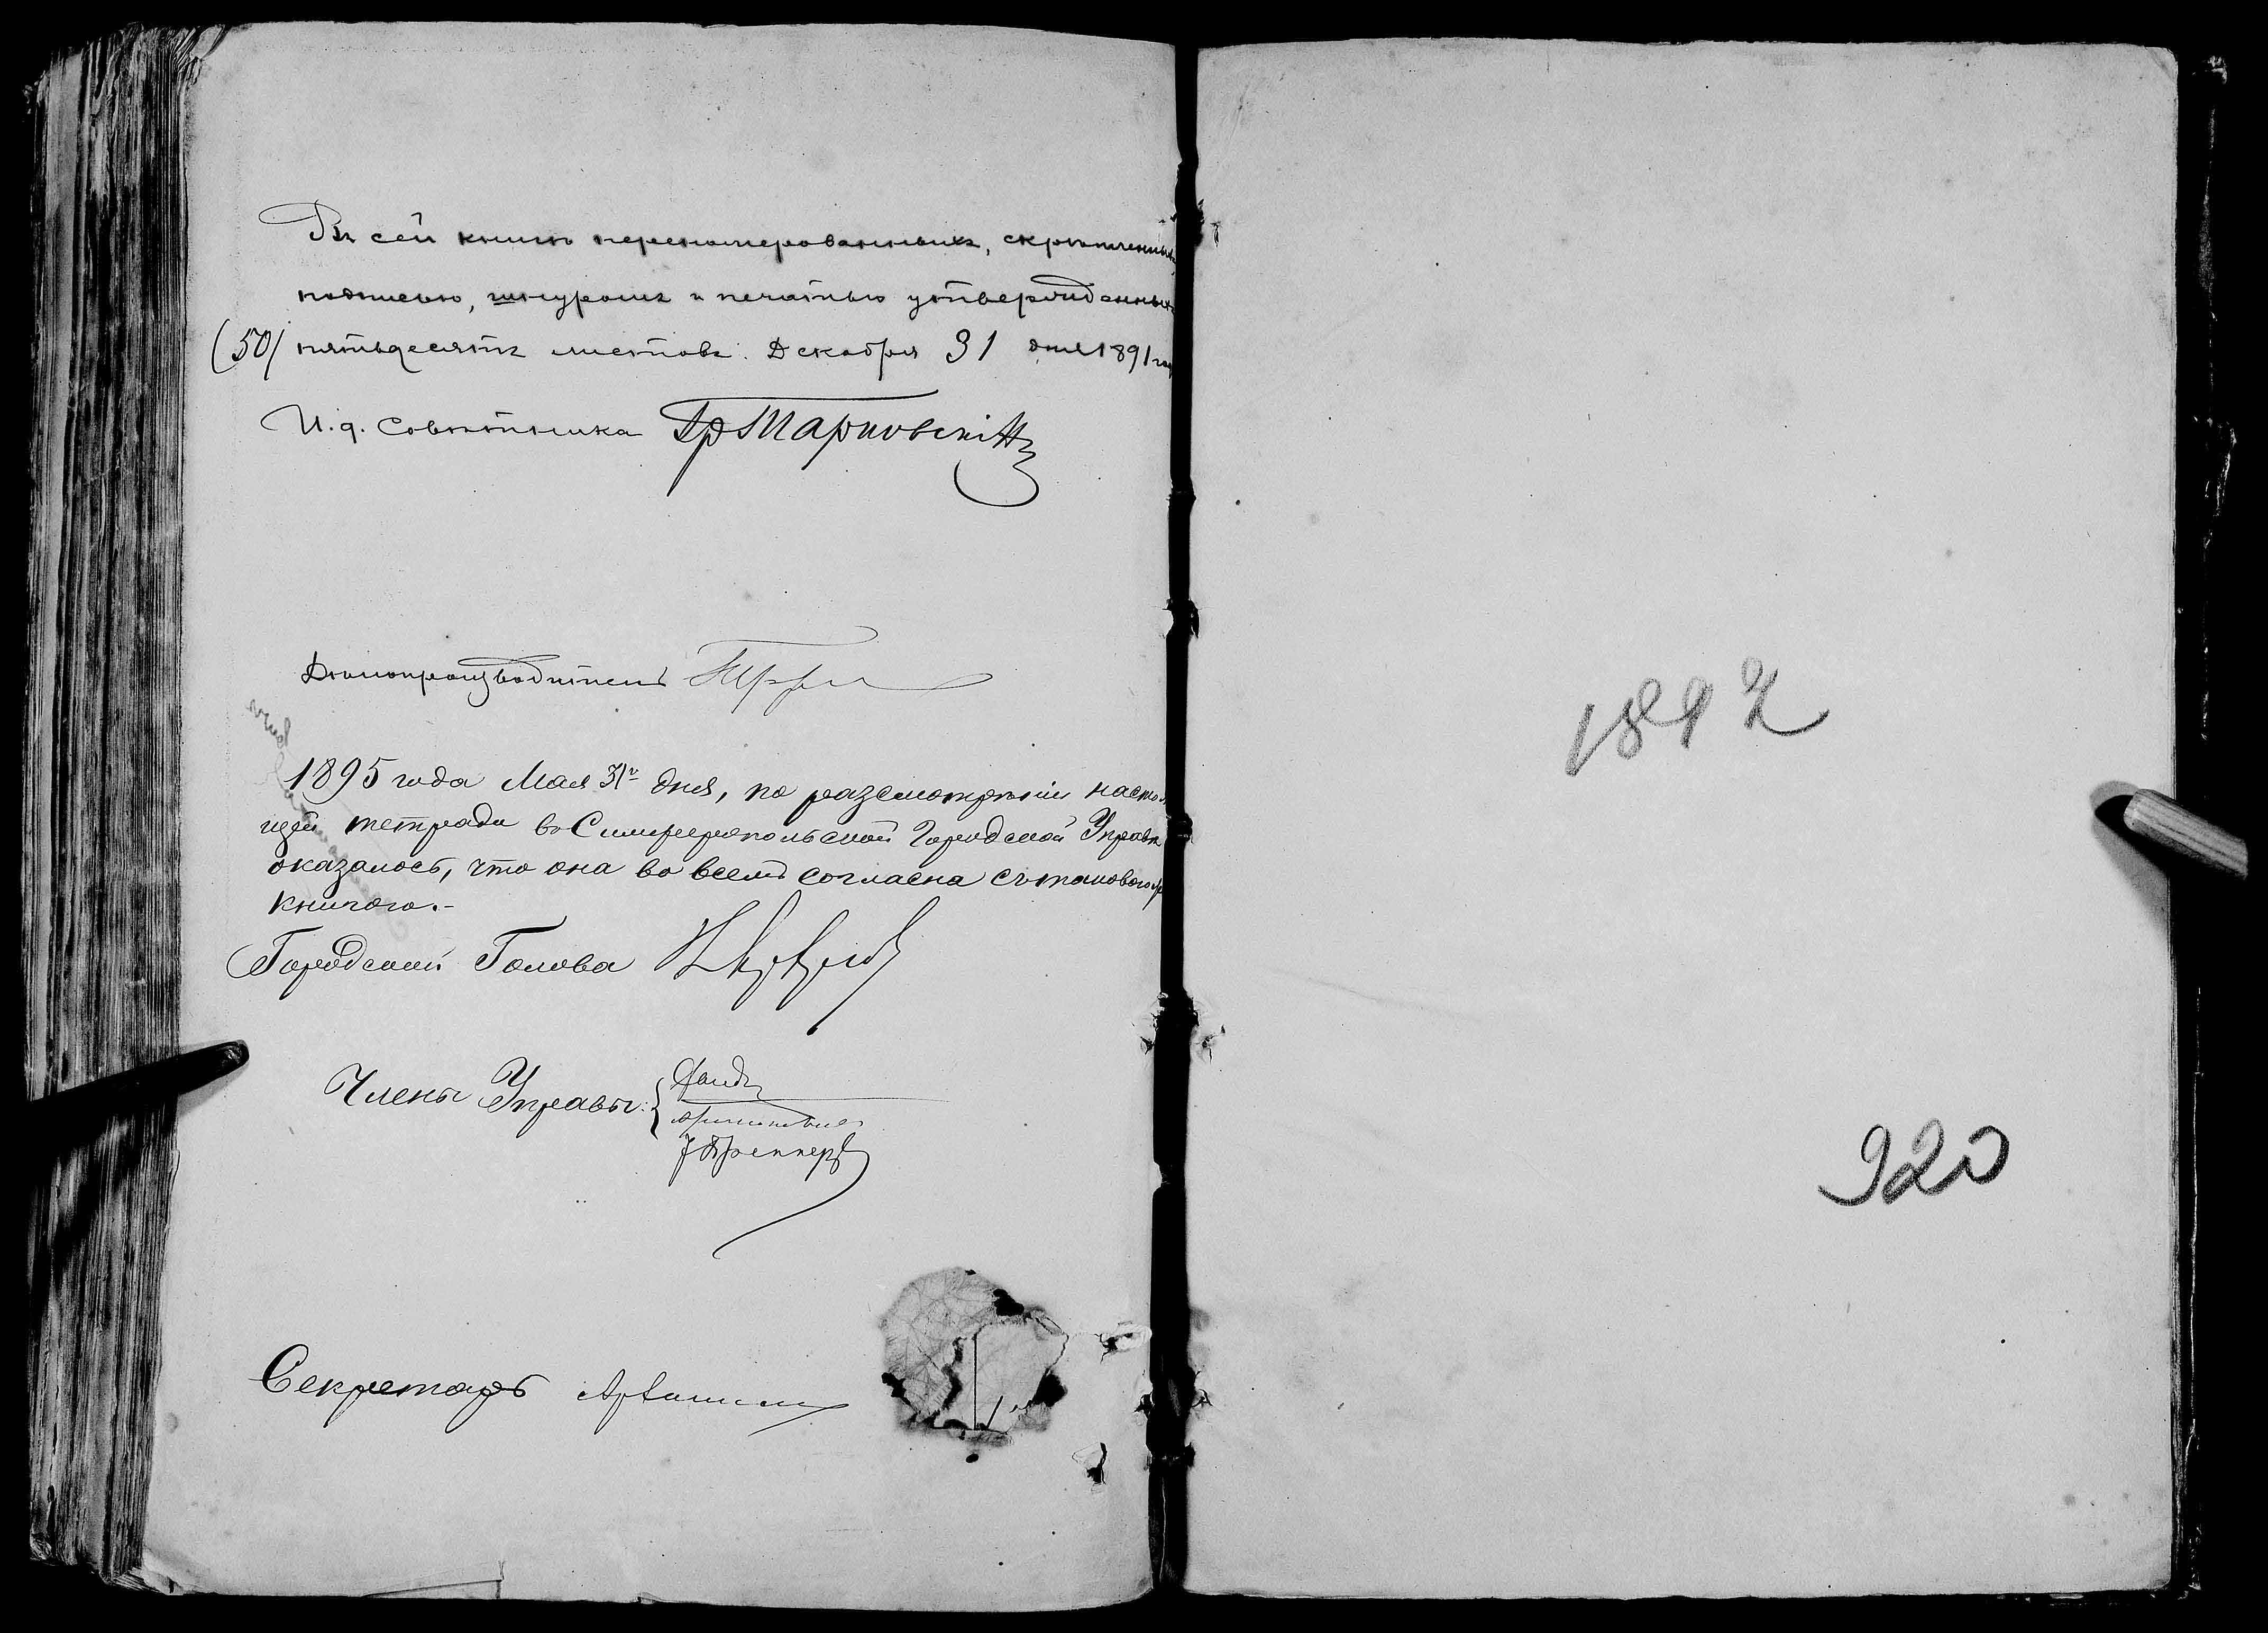 Въ сей книгѣ перенумерованныхъ, скрѣпленныхъ
подписью, шнуромъ и печатью утвержденныхъ
(50) пятьдесятъ листовъ. Декабря 31 дня 1891 год
И. д. Совѣтника Гр Тарновскій
Дѣлопроизводитель
1895 года Мая 31го дня, по разсмотрѣніи насто
щей тетради въ Симферопольской Городской Управѣ
оказалось, что она во всемъ согласна съ таковою
книгою.-
Городской Голова
Члены Управы:
Секретарь
1892
920